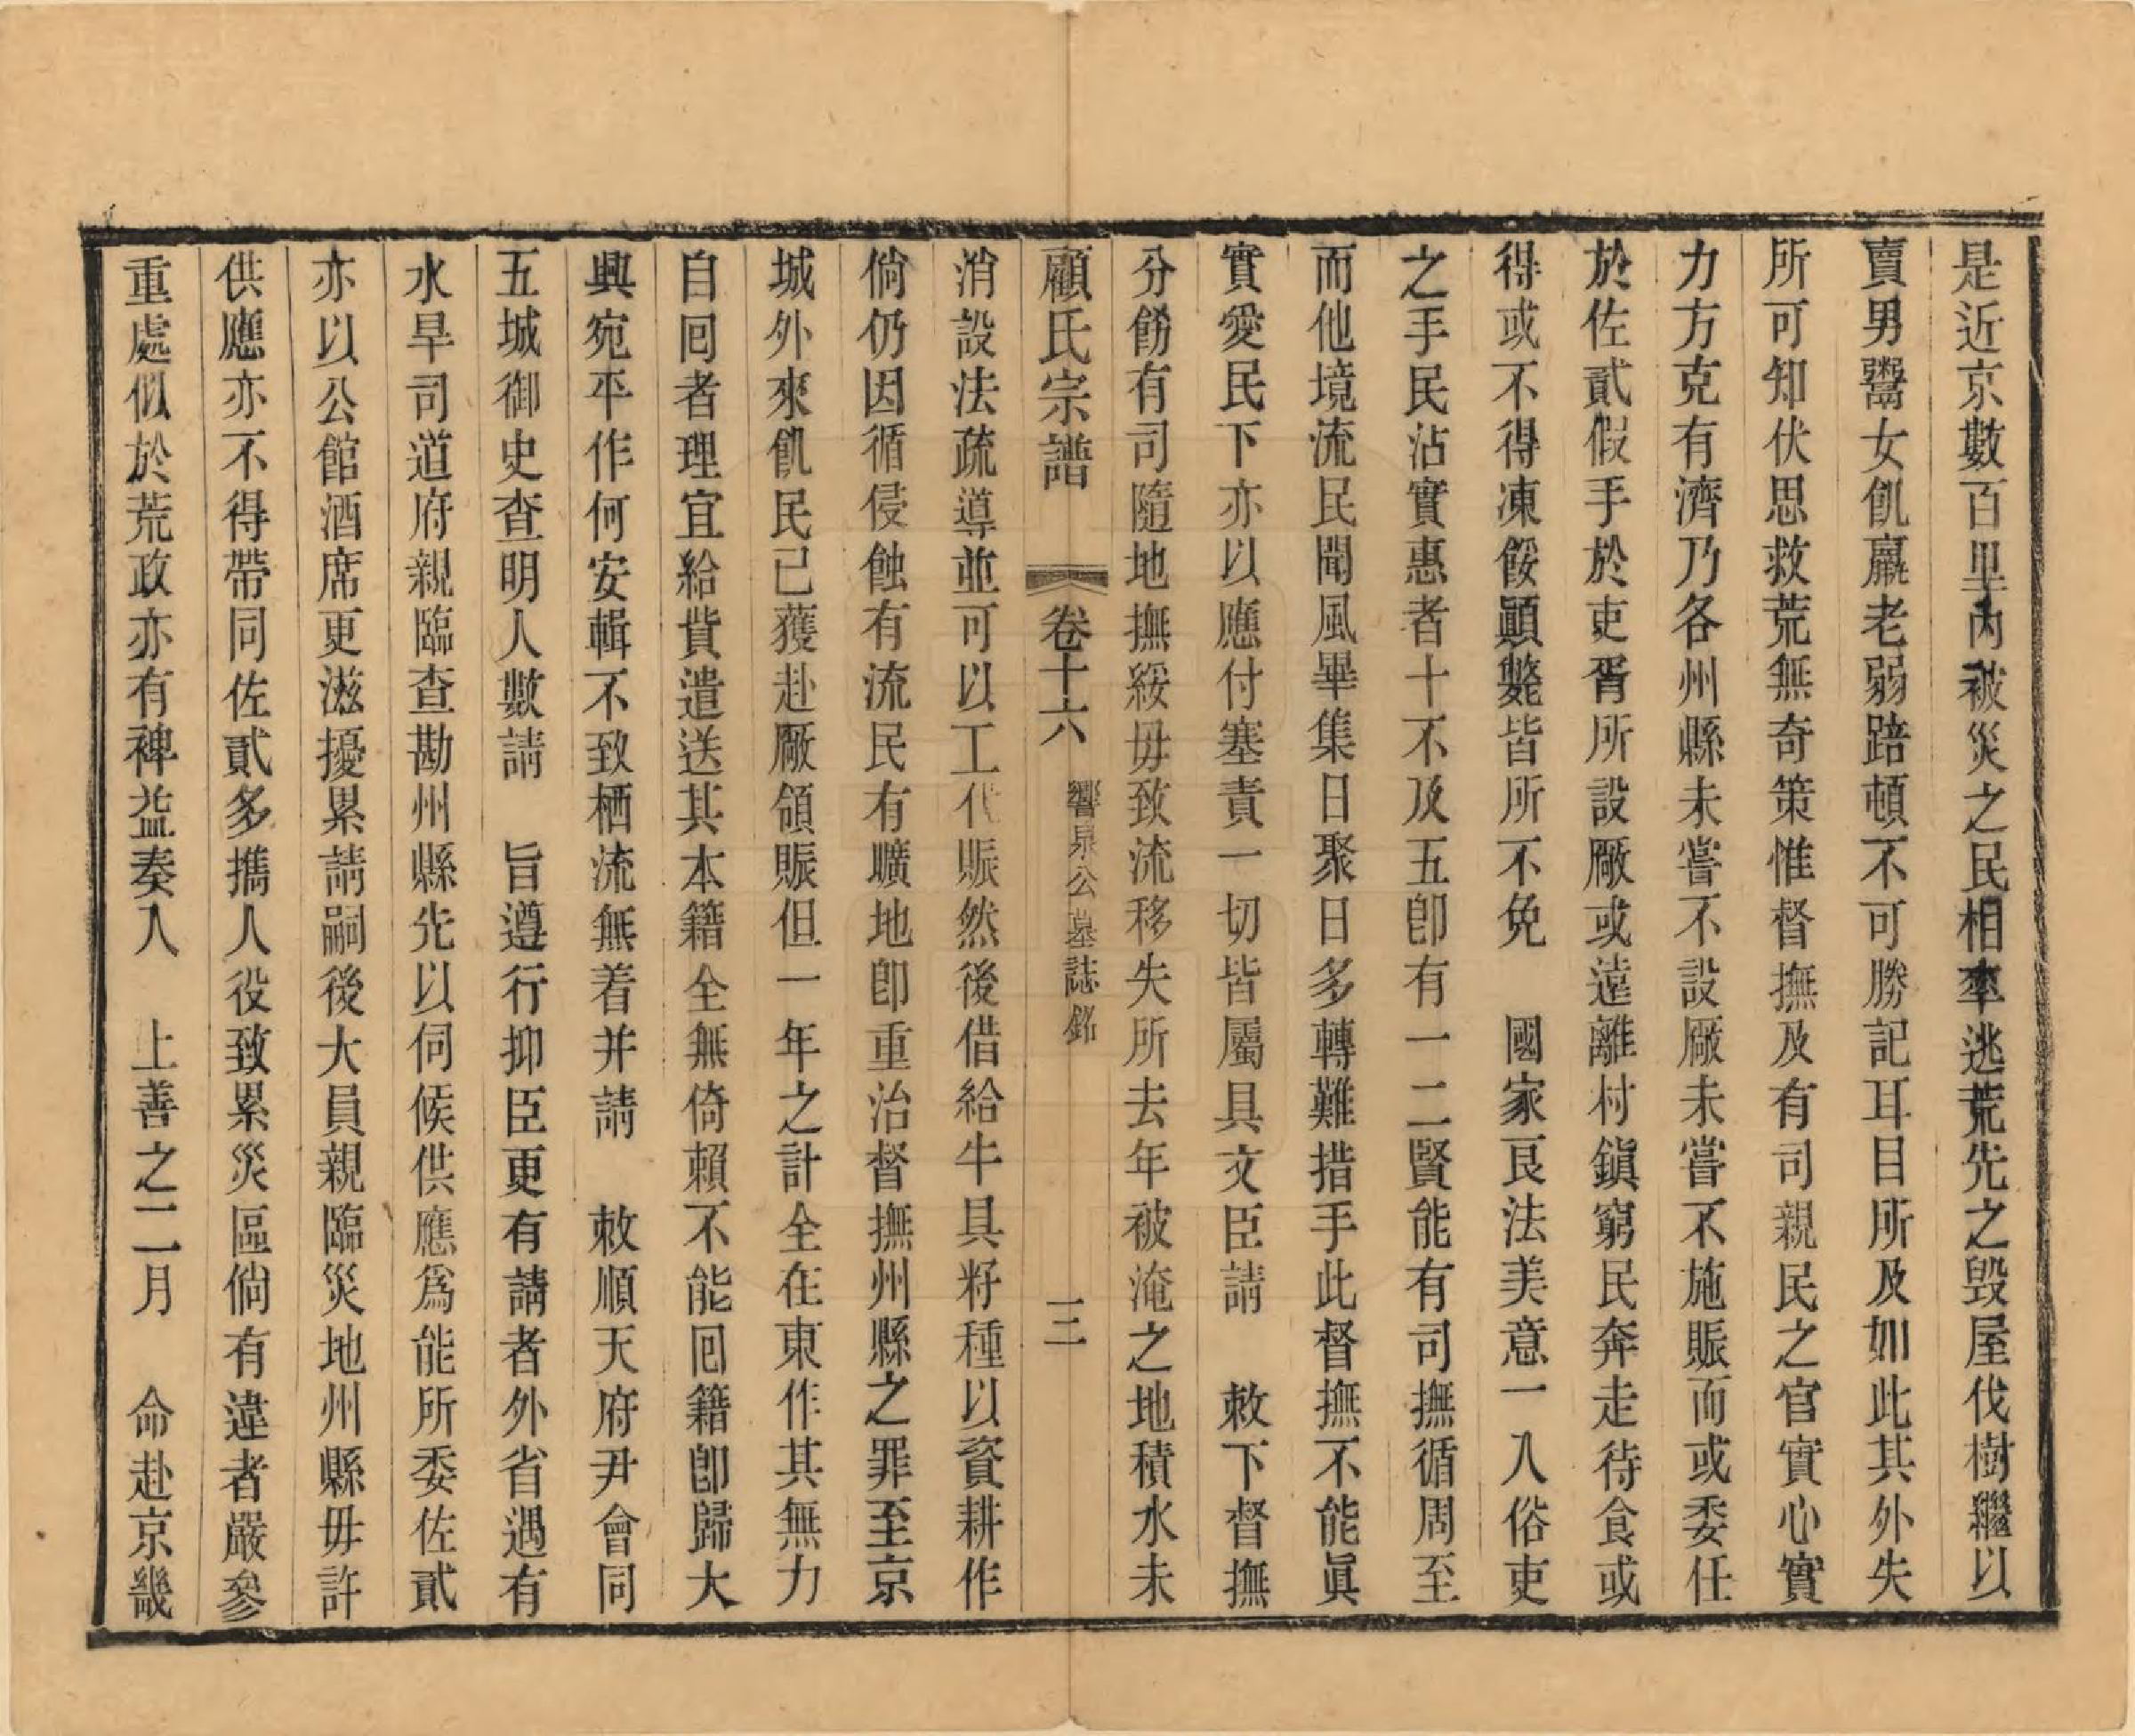 是近京數百里內被災之民相率逃荒先之毀屋伐樹繼以
賣男鬻女飢羸老弱踣頓不可勝記耳目所及如此其外失
所可知伏思救荒無奇策惟督撫及有司親民之官實心實
力方克有濟乃各州縣未嘗不設廠未嘗不施賑而或委任
於佐貳假手於吏胥所設廠或遠離村鎮窮民奔走待食或
得或不得凍餒顚斃皆所不免　國家良法美意一入俗吏
之手民沾實惠者十不及五卽有一二賢能有司撫循周至
而他境流民聞風畢集日聚日多轉難措手此督撫不能眞
實愛民下亦以應付塞責一切皆屬具文臣請　敕下督撫
分飭有司隨地撫綏毋致流移失所去年被淹之地積水未
顧氏宗譜　卷十六　響泉公墓誌銘　三
消設法疏導並可以工代賑然後借給牛具籽種以資耕作
倘仍因循侵蝕有流民有曠地卽重治督撫州縣之罪至京
城外來飢民已獲赴廠領賑但一年之計全在東作其無力
自回者理宜給貲遣送其本籍全無倚賴不能回籍卽歸大
興宛平作何安輯不致栖流無着并請　敕順天府尹會同
五城御史查明人數請　旨遵行抑臣更有請者外省遇有
水旱司道府親臨查勘州縣先以伺候供應爲能所委佐貳
亦以公館酒席更滋擾累請嗣後大員親臨災地州縣毋許
供應亦不得帶同佐貳多攜人役致累災區倘有違者嚴參
重處似於荒政亦有裨益奏入　上善之二月　命赴京畿